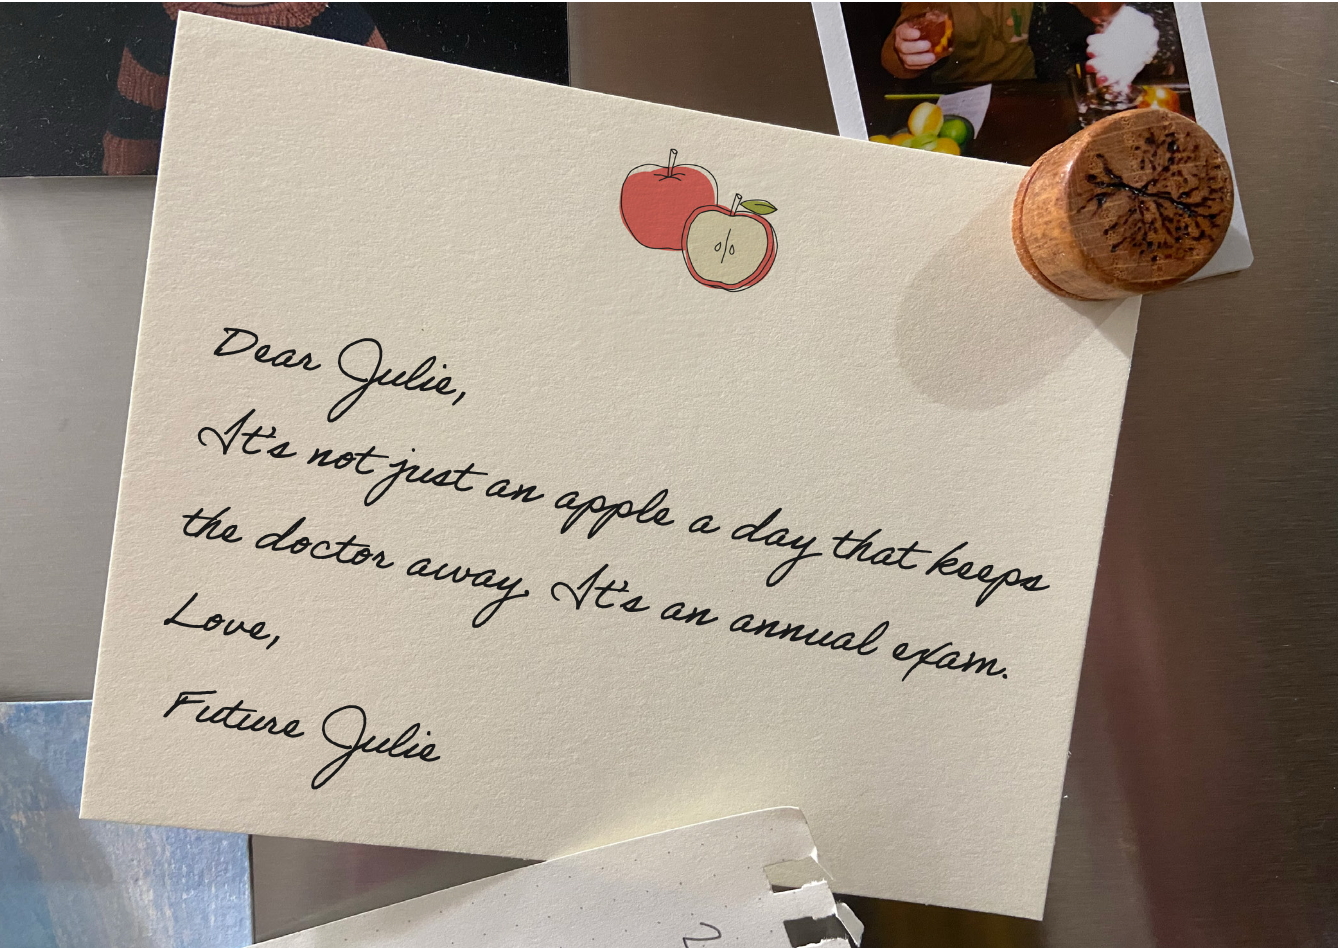 Dear Julie,
It's not just an apple a day that keeps
the doctor away. It's an annual exam.
Love,
Future Julie
2